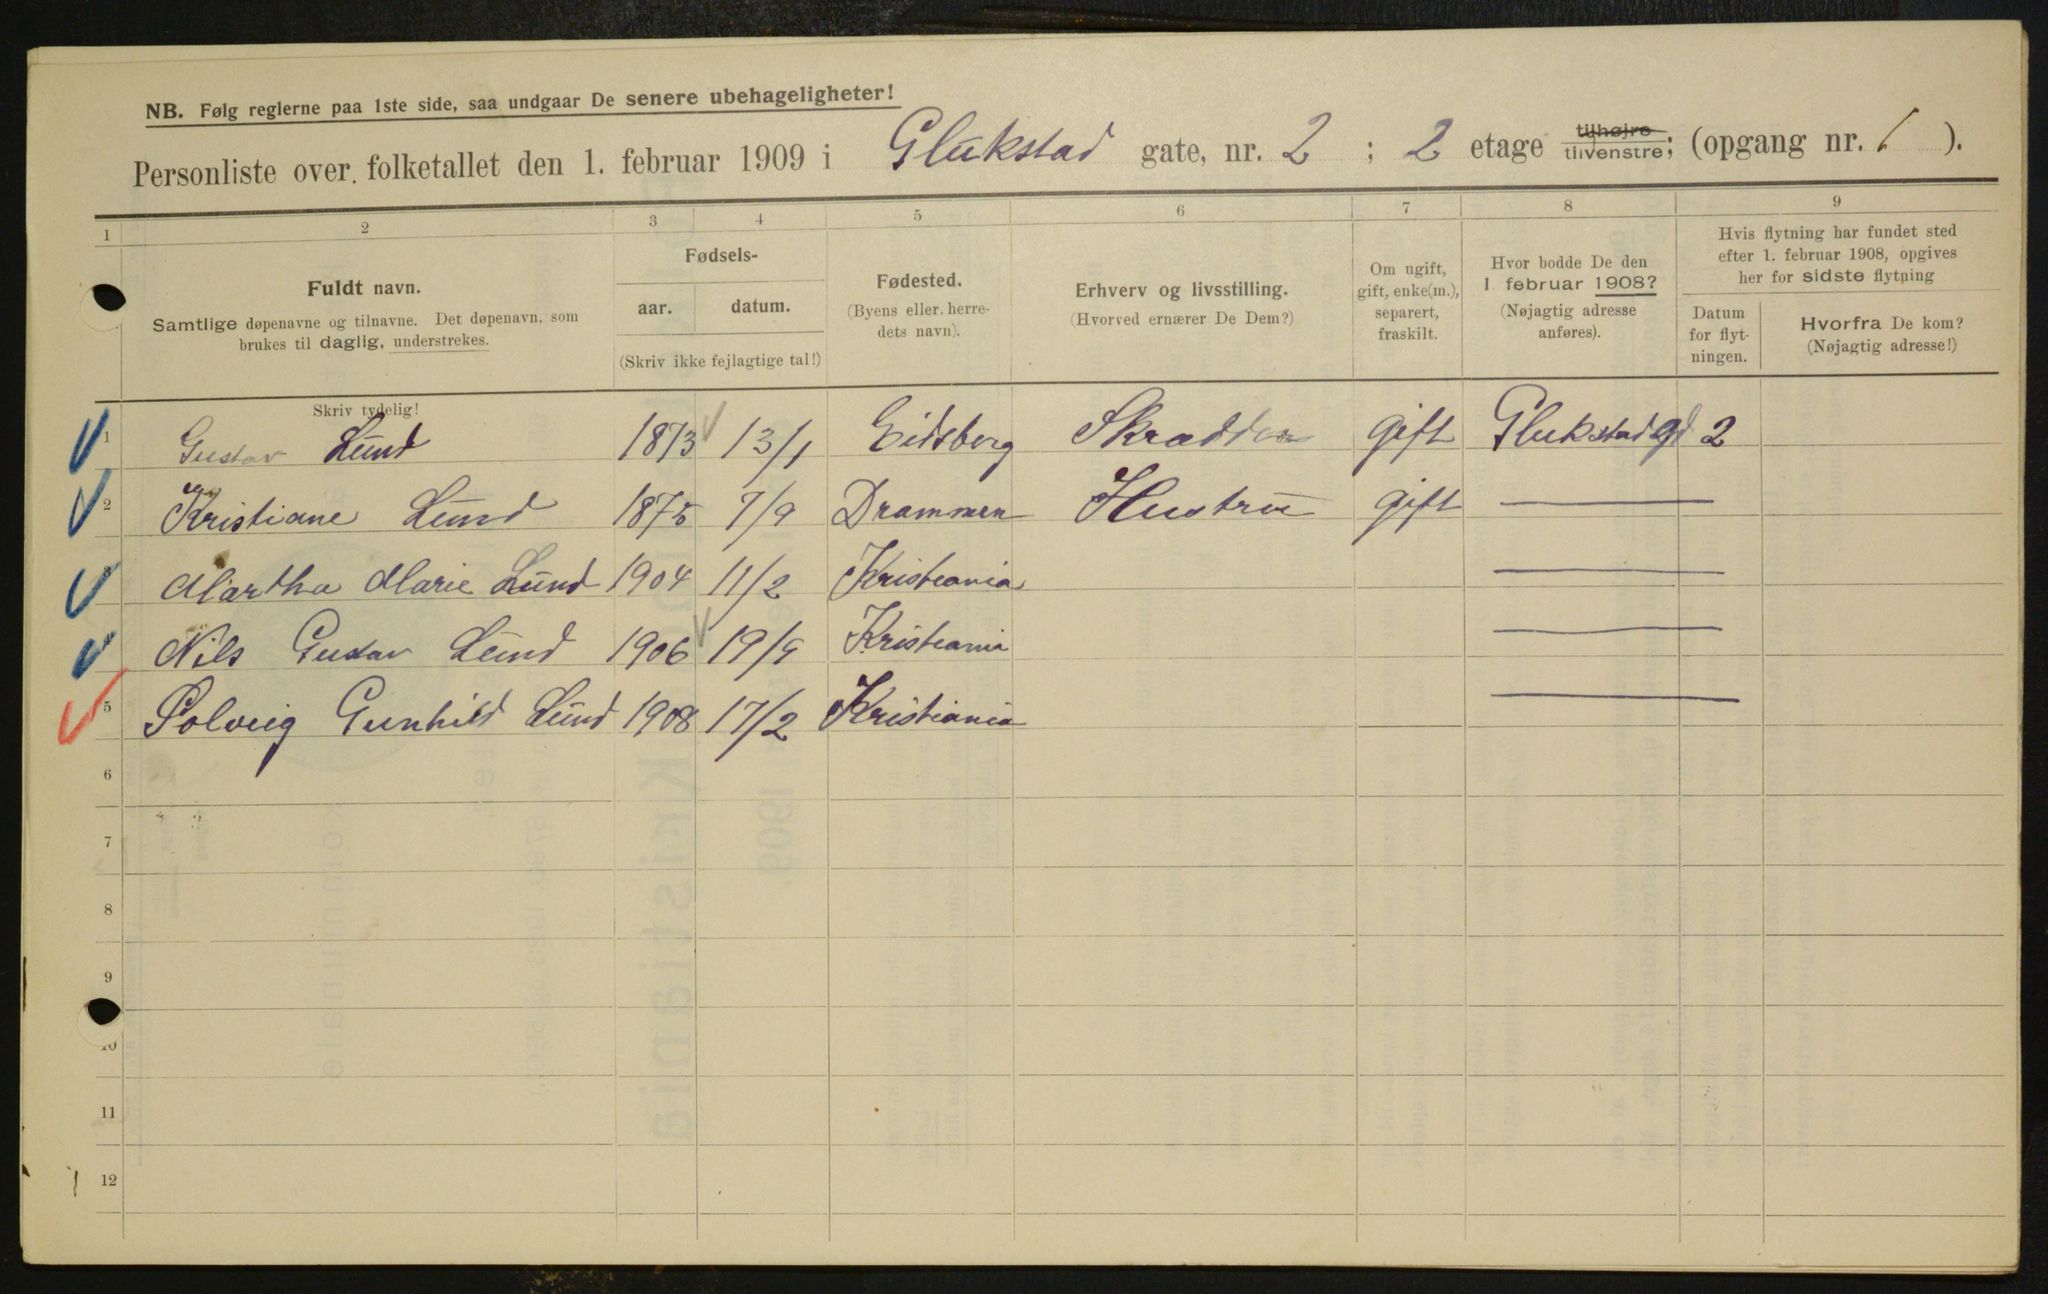 NB. Følg reglerne paa 1ste side, saa undgaar De senere ubehageligheter!
Personliste over folketallet den 1. februar 1909 i Glukstad gate, nr. 2 ; 2 etage tilhøjre tilvenstre; (opgang nr. 1 ).
1 2 3 4 5 6 7 8 9
Fuldt navn.
Samtlige døpenavne og tilnavne. Det døpenavn, som
brukes til daglig, understrekes.
Skriv tydelig!
Fødsels-
aar. datum.
(Skriv ikke fejlagtige tal!)
Fødested.
(Byens eller herre-
dets navn).
Erhverv og livsstilling.
(Hvorved ernærer De Dem?)
Om ugift,
gift, enke(m.),
separert,
fraskilt.
Hvor bodde De den
1. februar 1908?
(Nøjagtig adresse
anføres).
Hvis flytning har fundet sted
efter 1. februar 1908, opgives
her for sidste flytning
Datum
for flyt-
ningen.
Hvorfra De kom?
(Nøjagtig adresse!)
1 Gustav Lund 1873 13/1 Eidsberg Skrædder gift Glukstad gd 2
2 Kristiane Lund 1875 7/9 Drammen Hustru gift
Martha Marie Lund 1904 11/2 Kristeania
Nils Gustav Lund 1906 19/9 Kristeania
5 Solveig Gunhild Lund 1908 17/2 Kristiania
6
7
8
9
10
11
12